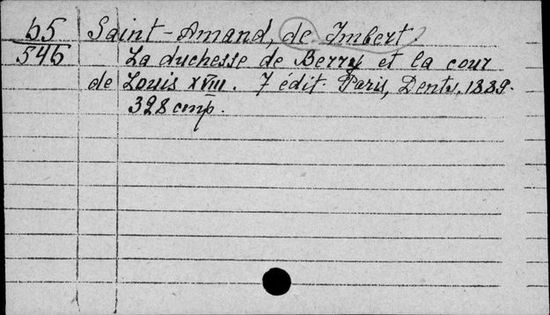 55
546
Saint-Amand, de Imbert.
La duchesse de Berry et la cour
de Louis XVIII. 7 édit. Paris, Dentu, 1889.
328 стр.